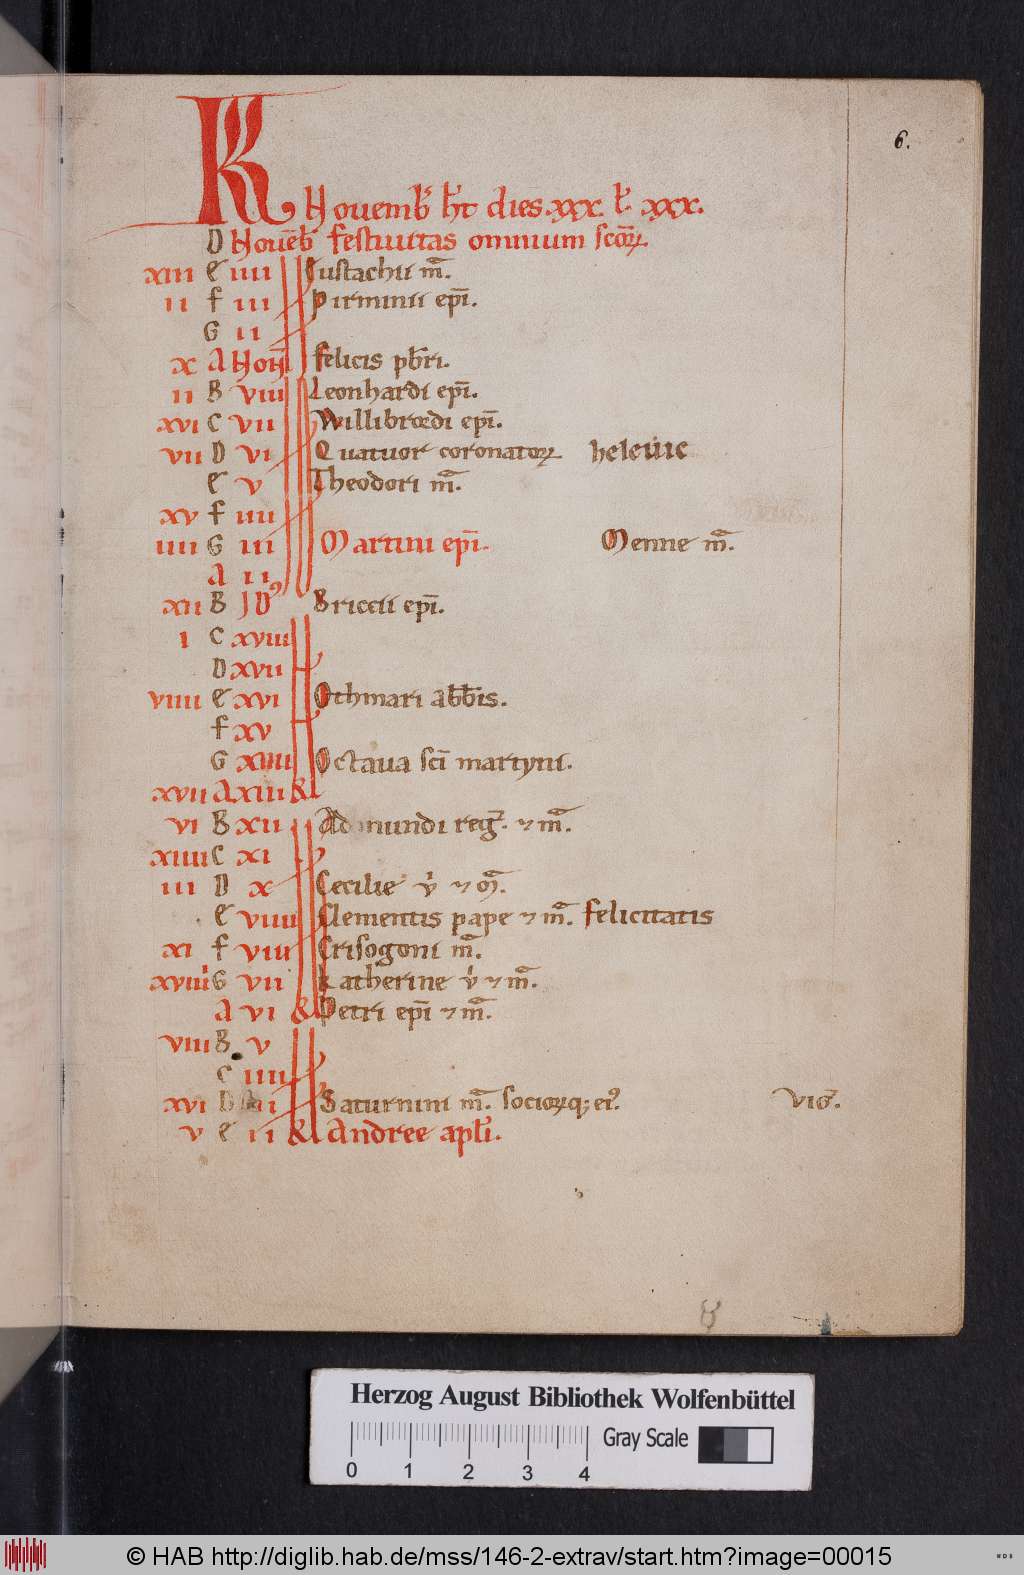 6.
KL Nouemb̄ h̄t dies. xxx. l̄. xxx.
D Nouēb̄ festiuitas omnium sc̄oꝝ.
xiii E iiii Eustachii m̄.
ii F iii Pirminii ep̄i.
G ii
x A Noñ felicis pb̄ri.
ii B viii Leonhardi ep̄i.
xvi C vii Willibrordi ep̄i.
vii D vi Quatuor coronatoꝝ
E v Theodori m̄.
xv F iiii
iiii G iii Martini ep̄i. Menne m̄.
A ii
xii B Idꝰ Briccii ep̄i.
i C xviii
D xvii
viiii E xvi Othmari abb̄is.
F xv
G xiiii Octaua sc̄i martyni.
xvii A xiii
vi B xii Admundi reḡ. ⁊ m̄.
xiiii C xi
iii D x Cecilie v̄ ⁊ m̄.
E viiii Clementis pape ⁊ m̄. felicitatis
xi F viii Crisogoni m̄.
xviiii G vii Katherine v̄ ⁊ m̄.
A vi Petri ep̄i ⁊ m̄.
viii B v
C iiii
xvi D iii Saturnini m̄. socioꝝq; eiꝰ. Viḡ.
v E ii Andree apl̄i.
Herzog August Bibliothek Wolfenbüttel
0 1 2 3 4 Gray Scale
© HAB http://diglib.hab.de/mss/146-2-extrav/start.htm?image=00015